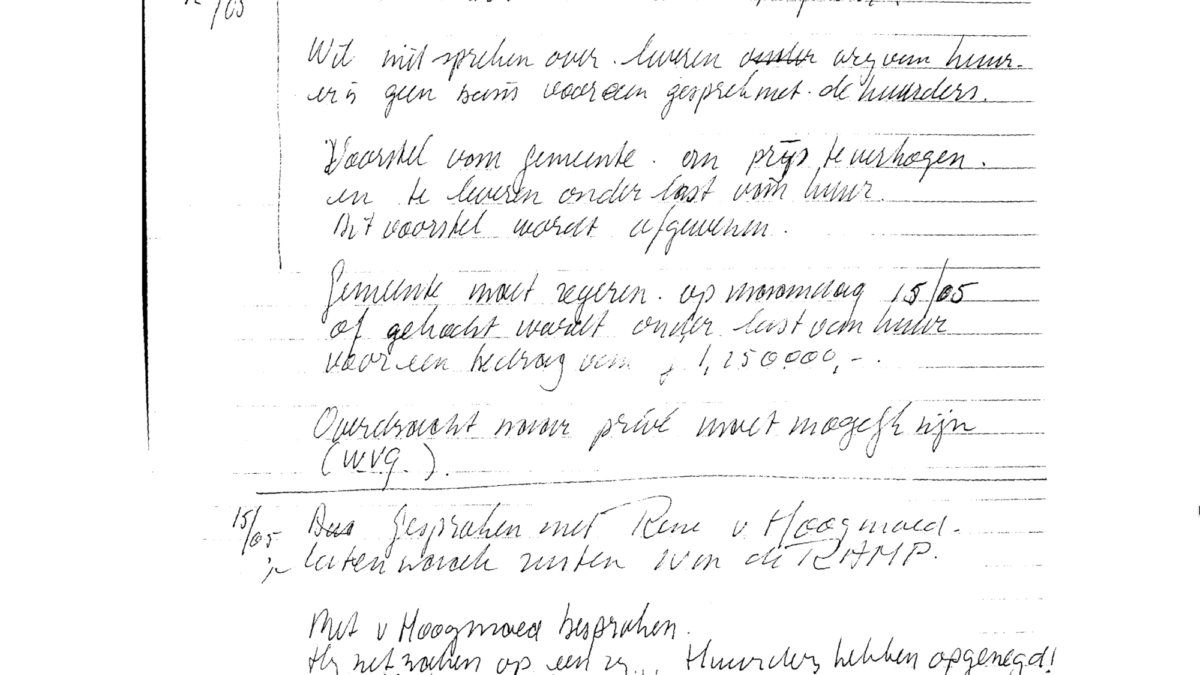 /05
Wil niet spreken over leveren onder vrij van huur.
er is geen basis voor een gesprek met de huurders.
Voorstel van gemeente om prijs te verhogen.
en te leveren onder last van huur.
Dit voorstel wordt afgewezen.
Gemeente moet reageren op maandag 15/05
of gekocht wordt onder last van huur
voor een bedrag van ƒ 1,250.000,-.
Overdracht naar privé moet mogelijk zijn
(WVG.).
15/05 Gesproken met Rene v Hoogmoed.
laten van de RAMP.
Met v Hoogmoed besproken.
Hij zet zaken op een Huurders hebben opgezegd!